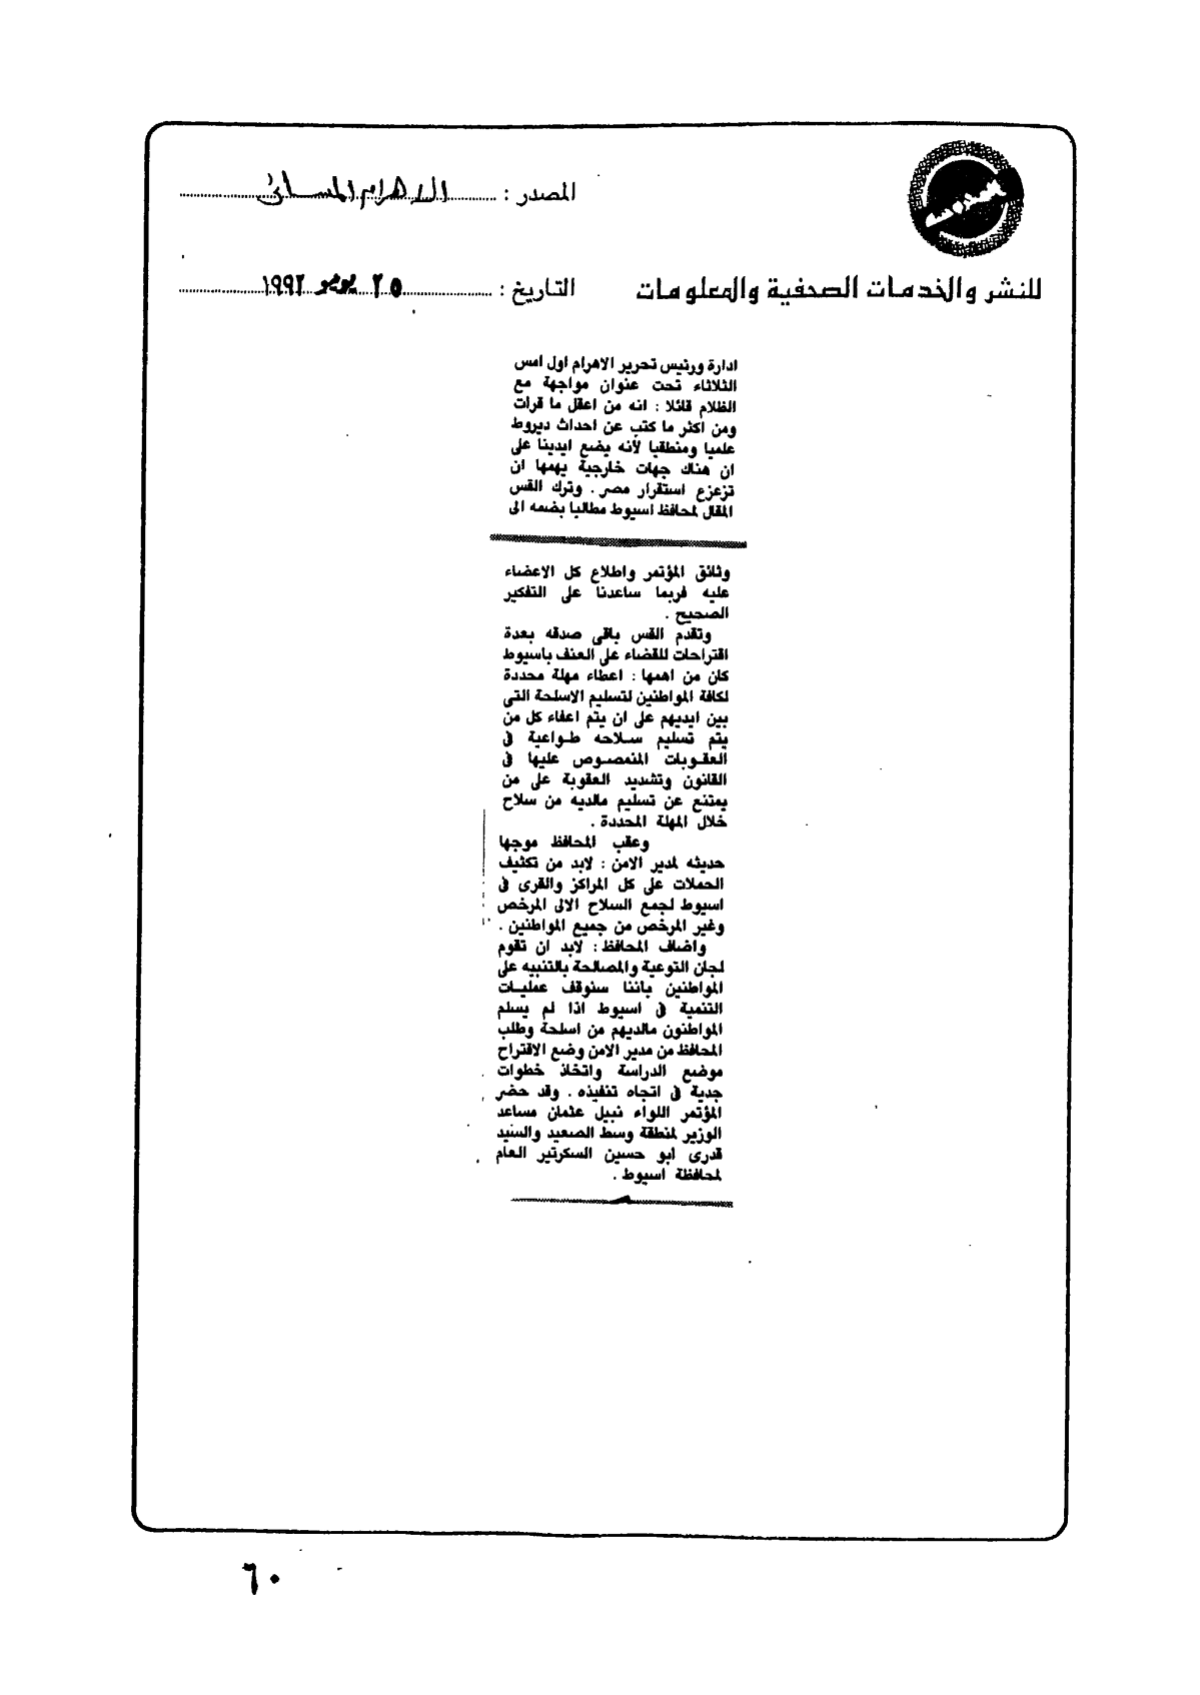 المصدر : الاهرام المسائى
للنشر والخدمات الصحفية والمعلومات
التاريخ : ٢٥ يونيو ١٩٩٢
ادارة ورئيس تحرير الاهرام اول امس
الثلاثاء تحت عنوان مواجهة مع
الظلام قائلا : انه من اعقل ما قرات
ومن اكثر ما كتب عن احداث ديروط
علميا ومنطقيا لأنه يضع ايدينا على
ان هناك جهات خارجية يهمها ان
تزعزع استقرار مصر . وترك القس
المقال لمحافظ اسيوط مطالبا بضمه الى
وثائق المؤتمر واطلاع كل الاعضاء
عليه فربما ساعدنا على التفكير
الصحيح .
وتقدم القس باقى صدقه بعدة
اقتراحات للقضاء على العنف باسيوط
كان من اهمها : اعطاء مهلة محددة
لكافة المواطنين لتسليم الاسلحة التى
بين ايديهم على ان يتم اعفاء كل من
يتم تسليم سلاحه طواعية فى
العقوبات المنصوص عليها فى
القانون وتشديد العقوبة على من
يمتنع عن تسليم مالديه من سلاح
خلال المهلة المحددة .
وعقب المحافظ موجها
حديثه لمدير الامن : لابد من تكثيف
الحملات على كل المراكز والقرى فى
اسيوط لجمع السلاح الالى المرخص
وغير المرخص من جميع المواطنين .
واضاف المحافظ : لابد ان تقوم
لجان التوعية والمصالحة بالتنبيه على
المواطنين باننا سنوقف عمليات
التنمية فى اسيوط اذا لم يسلم
المواطنون مالديهم من اسلحة وطلب
المحافظ من مدير الامن وضع الاقتراح
موضع الدراسة واتخاذ خطوات
جدية فى اتجاه تنفيذه . وقد حضر
المؤتمر اللواء نبيل عثمان مساعد
الوزير لمنطقة وسط الصعيد والسيد
قدرى ابو حسين السكرتير العام
لمحافظة اسيوط .
٦٠